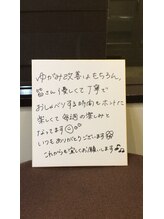 ゆがみ改善はもちろん、
皆さん優しくて丁寧で
おしゃべりする時間もホントに
楽しくて毎週の楽しみと
なってます☺
いつもありがとうございます
これからも宜しくお願いします♪♪